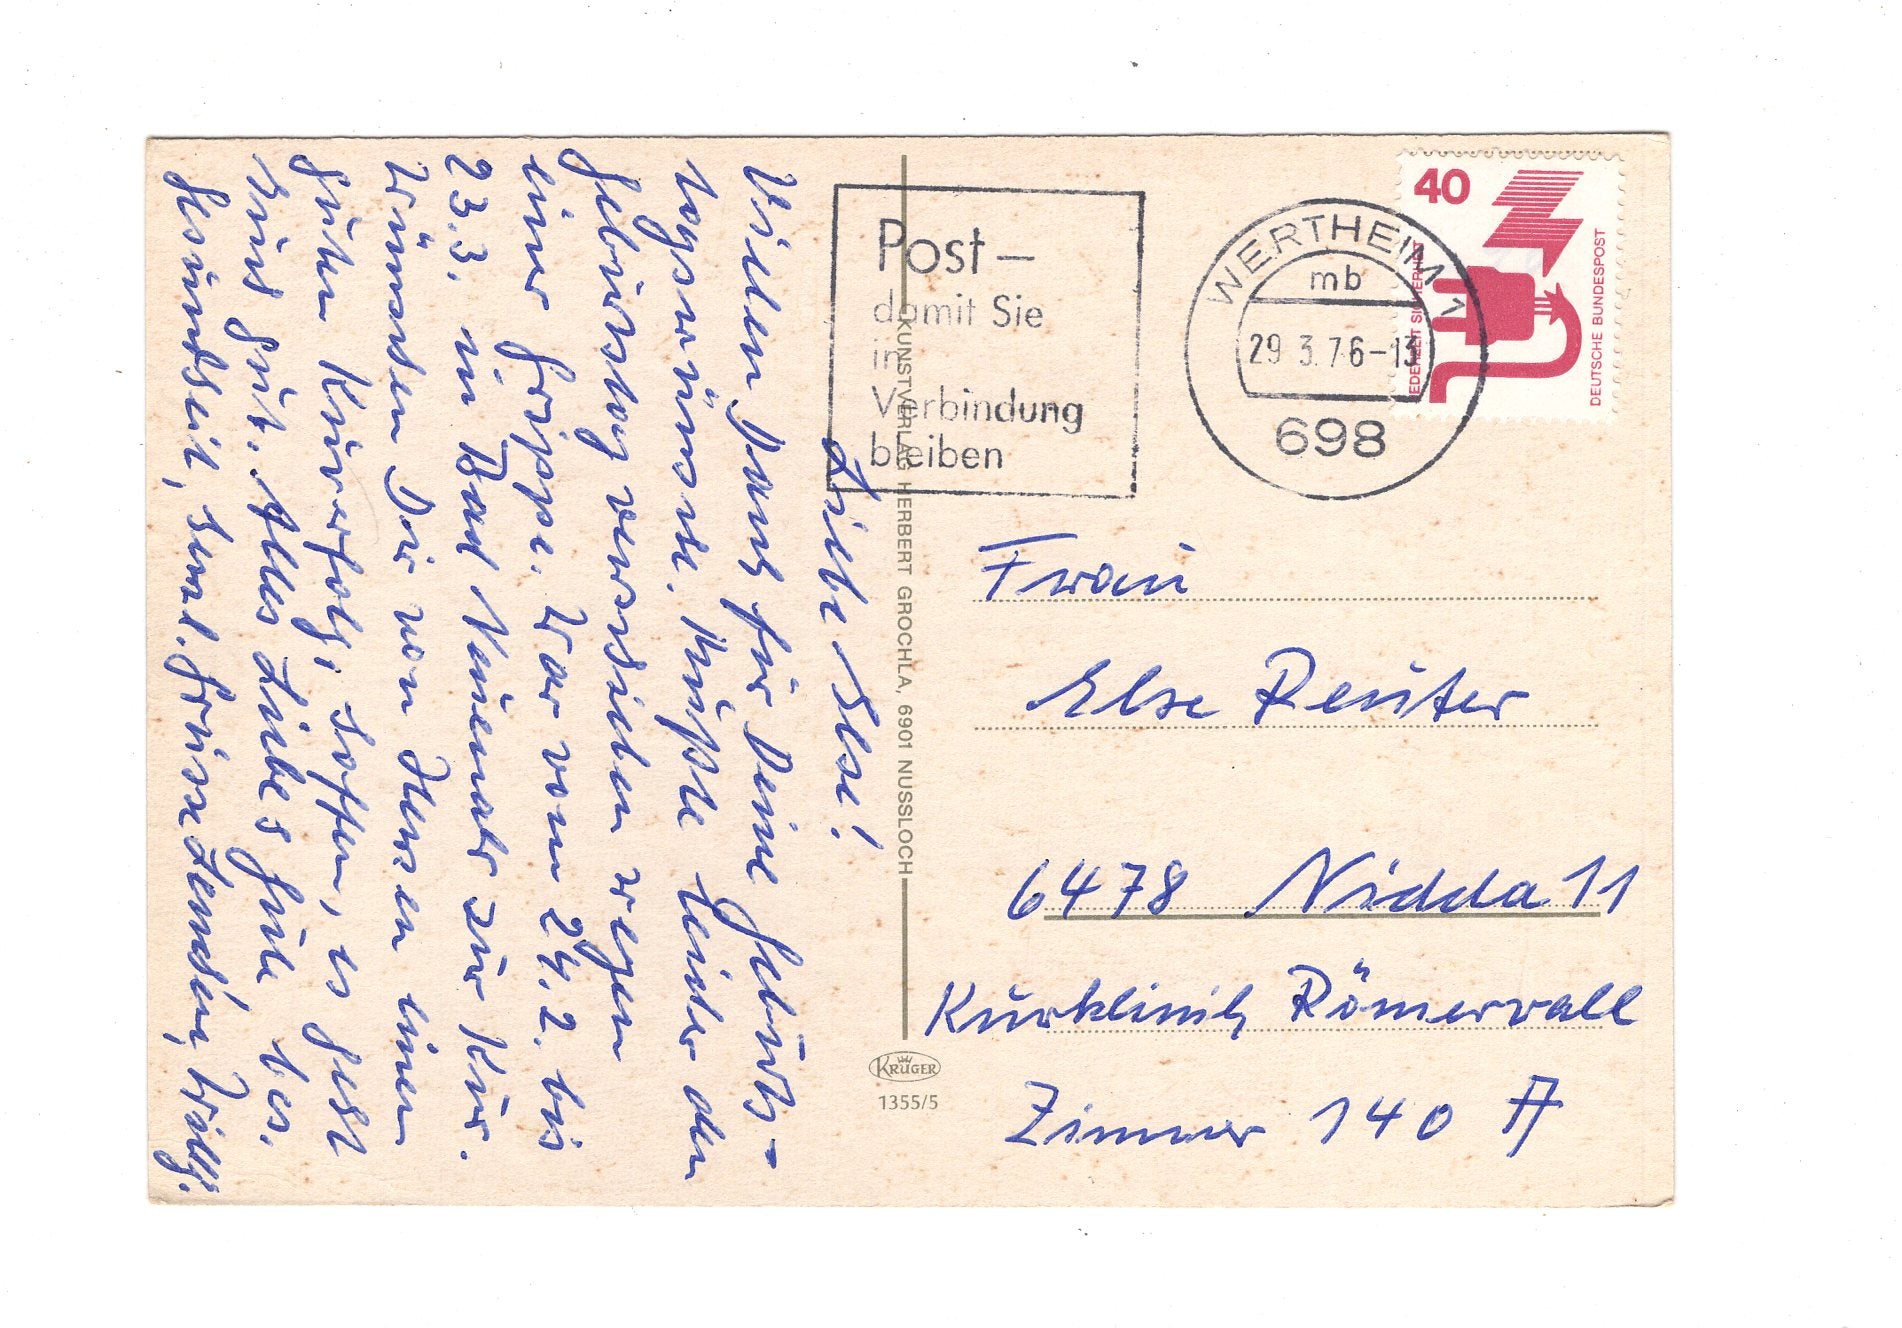 Liebe Else!
Vielen Dank für Deine Geburts-
tagswünsche. Mußte leider den
Geburtstag verschieben wegen
einer Grippe. War vom 24.2. bis
23.3. in Bad Neuenahr zur Kur.
Wünschen Dir von Herzen einen
guten Kurerfolg, hoffen, es geht
Dir gut. Alles Liebe Gute bes.
Gesundheit, herzl. Grüsse Willy.
Post –
damit Sie
in
Verbindung
bleiben
WERTHEIM 1
mb
29.3.76-13
698
40
JEDERZEIT SICHERHEIT
DEUTSCHE BUNDESPOST
KUNSTVERLAG HERBERT GROCHLA, 6901 NUSSLOCH
KRÜGER
1355/5
Frau
Else Reuter
6478 Nidda 11
Kurklinik Römerwall
Zimmer 140 A